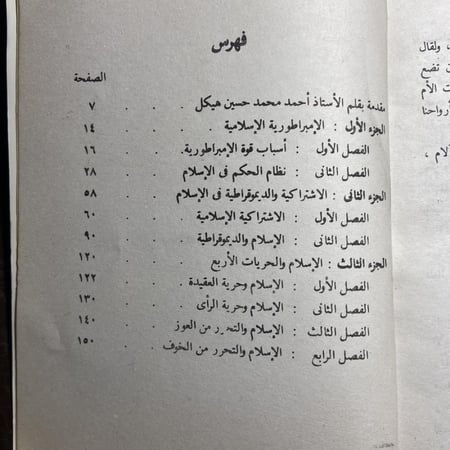 فهرس
الصفحة
مقدمة بقلم الأستاذ أحمد محمد حسين هيكل . . . ٧
الجزء الأول : الإمبراطورية الإسلامية . . . ١٤
الفصل الأول : أسباب قوة الإمبراطورية . . . ١٦
الفصل الثانى : نظام الحكم فى الإسلام . . . ٢٨
الجزء الثانى : الاشتراكية والديموقراطية فى الإسلام . . ٥٨
الفصل الأول : الاشتراكية الإسلامية . . . ٦٠
الفصل الثانى : الإسلام والديموقراطية . . . ٩٠
الجزء الثالث : الإسلام والحريات الأربع . . . ١٢٠
الفصل الأول : الإسلام وحرية العقيدة . . . ١٢٢
الفصل الثانى : الإسلام وحرية الرأى . . . ١٣٠
الفصل الثالث : الإسلام والتحرر من العوز . . . ١٤٠
الفصل الرابع : الإسلام والتحرر من الخوف . . . ١٥٠
، ولقال
تضع
الأم
أرواحنا